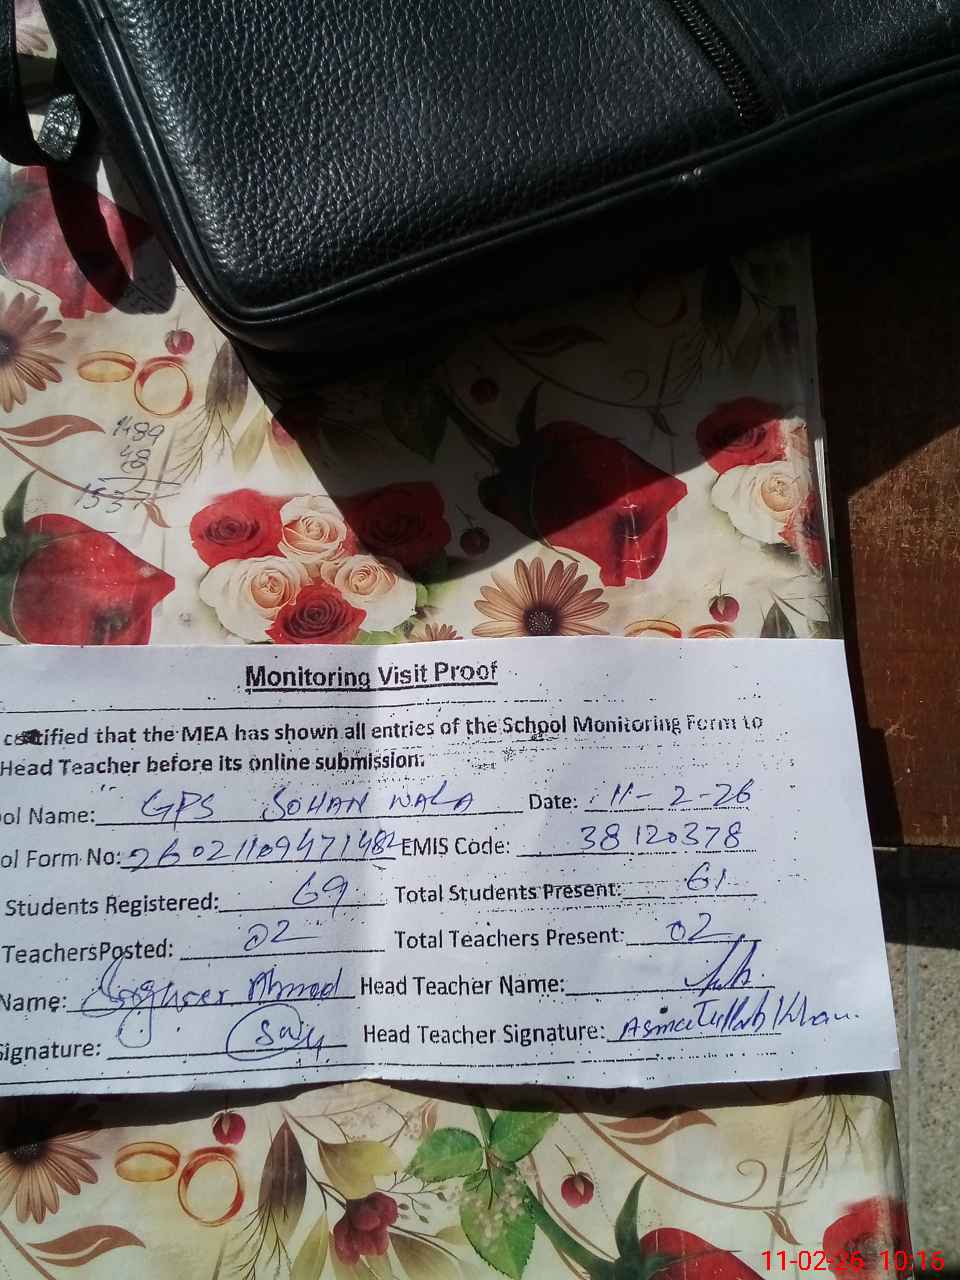 1489
48
1537
Monitoring Visit Proof
certified that the MEA has shown all entries of the School Monitoring Form to
Head Teacher before its online submission.
ool Name: GPS SOHAN WALA Date: 11-2-26
ol Form No: 26021109471482 EMIS Code: 38120378
Students Registered: 69 Total Students Present: 61
TeachersPosted: 02 Total Teachers Present: 02
Name: Ahmad Head Teacher Name:
Signature: Head Teacher Signature: Asmatullah Khan.
11-02-26 10:16